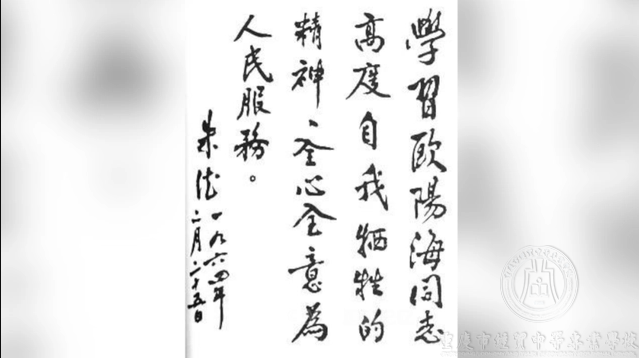 學習歐陽海同志
高度自我牺牲的
精神、全心全意為
人民服務。
朱德 一九六四年
二月二十五日